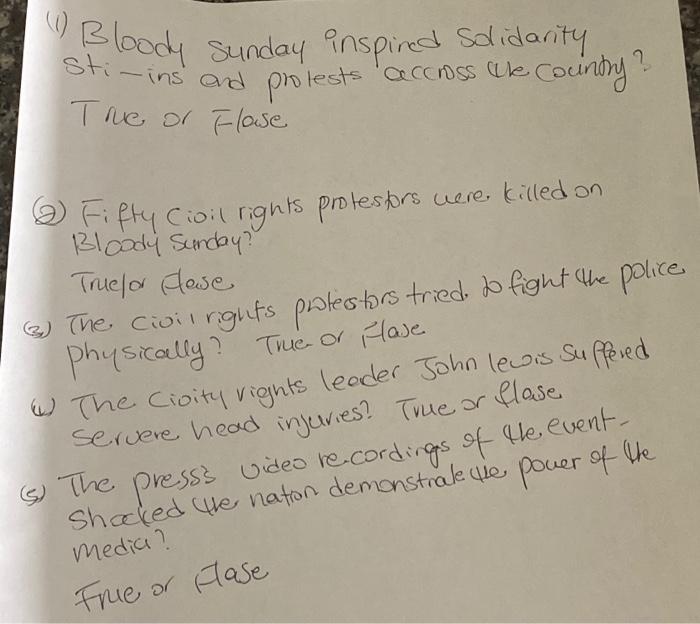 (1) Bloody Sunday inspired Solidarity
Sti-ins and protests accross the Country?
True or Flase
(2) Fifty Civil rights protestors were killed on
Bloody Sunday?
True/or flase
(3) The civil rights protestors tried to fight the police
physically? True or Flase
(4) The Civity rights leader John lewis Suffered
Servere head injuries? True or flase
(5) The press's video recordings of the event-
Shocked the nation demonstrate the power of the
media?
True or flase